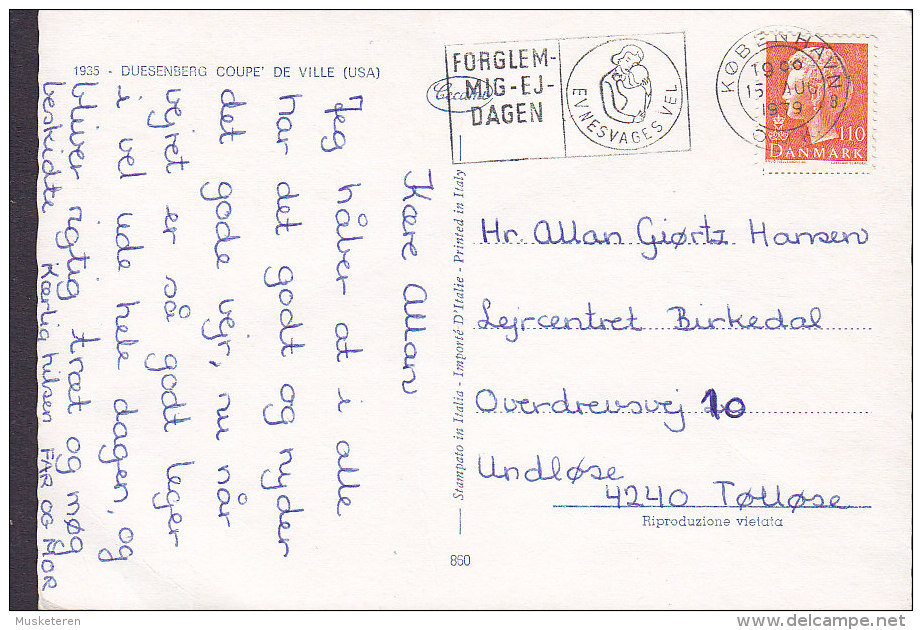 1935 - DUESENBERG COUPE' DE VILLE (USA)
Kære Allan
Jeg håber at i alle
har det godt og nyder
det gode vejr, nu når
vejret er så godt leger
i vel ude hele dagen, og
bliver rigtig træt og møg
beskidte Kærlig hilsen FAR OG MOR
Cecami
FORGLEM-
MIG-EJ-
DAGEN
EVNESVAGES VEL
KØBENHAVN
1979
110
DANMARK
Stampato in Italia - Importé D'Italie - Printed in Italy
Hr. Allan Giørtz Hansen
Lejrcentret Birkedal
Overdrevsvej 10
Undløse
4240 Tølløse
Riproduzione vietata
860
Musketeren
delcampe.net